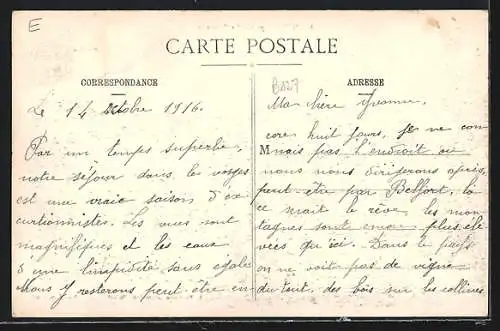 E
CARTE POSTALE
CORRESPONDANCE
Le 14 Octobre 1916.
Par un temps superbe,
notre séjour dans les vosges
est une vraie saison d'ex
curtionnistes. Les vues sont
magnifiques et les eaux
d'une limpidité sans égale
Nous y resterons peut-être en
B127
ADRESSE
Ma chère Yvonne,
core huit jours, je ne con
M nais pas l'endroit où
nous nous dirigerons après,
peut-être par Belfort, là
ce serait le rêve, les mon
tagnes sont encore plus éle
vées qu'ici. Dans le pays
on ne voit pas de vigne
du tout, des bois sur les collines